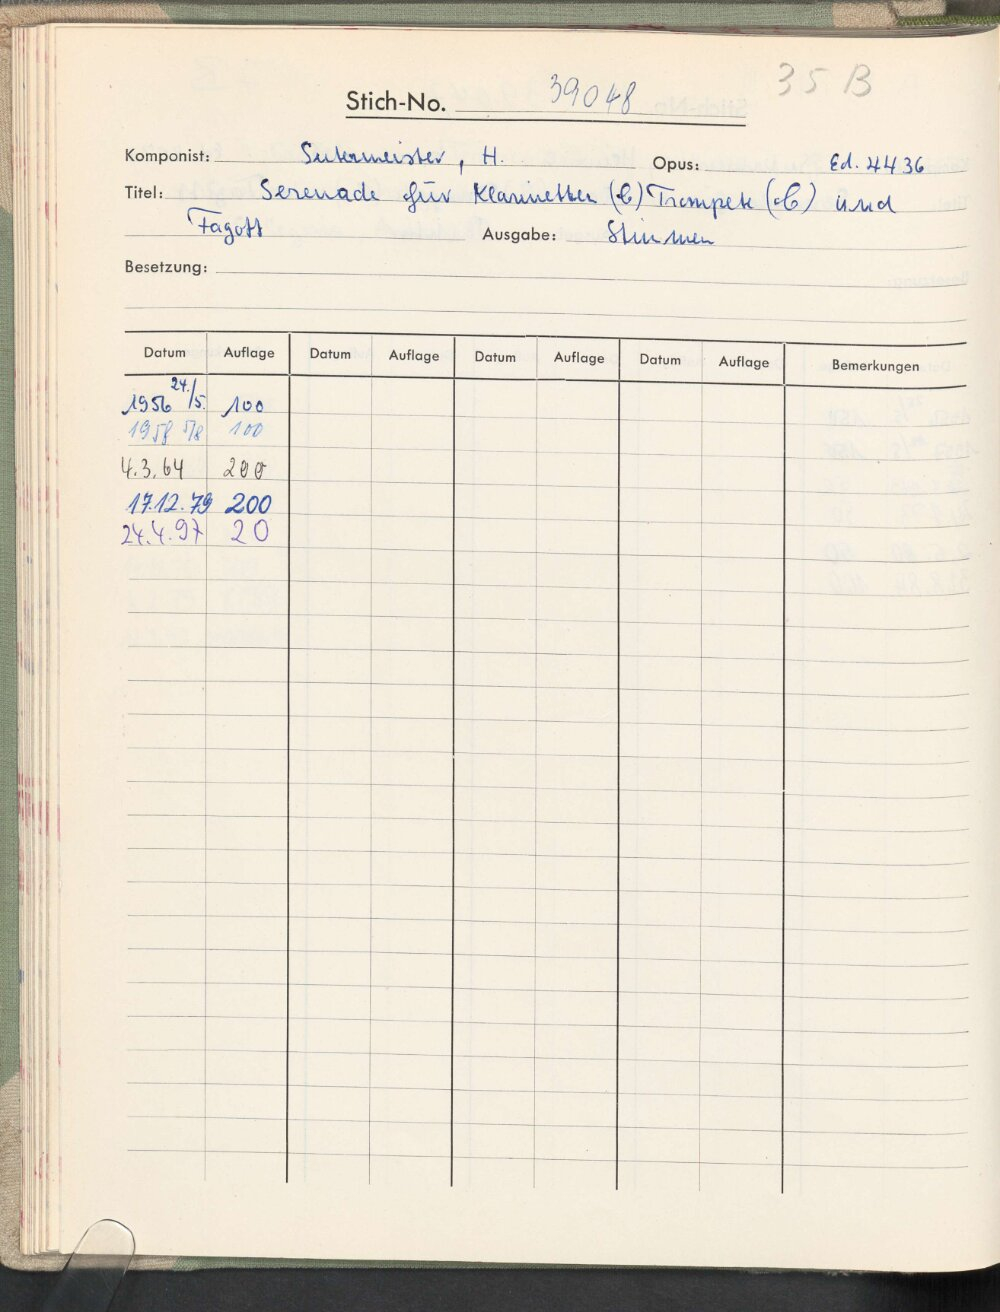 35 B
Stich-No. 39048
Komponist: Sutermeister, H. Opus: Ed. 4436
Titel: Serenade für Klarinetten (b) Trompete (b) und
Fagott Ausgabe: Stimmen
Besetzung:
Datum Auflage Datum Auflage Datum Auflage Datum Auflage Bemerkungen
1956 24./5. 100
1958 5/8 100
4.3.64 200
17.12.79 200
24.4.97 20